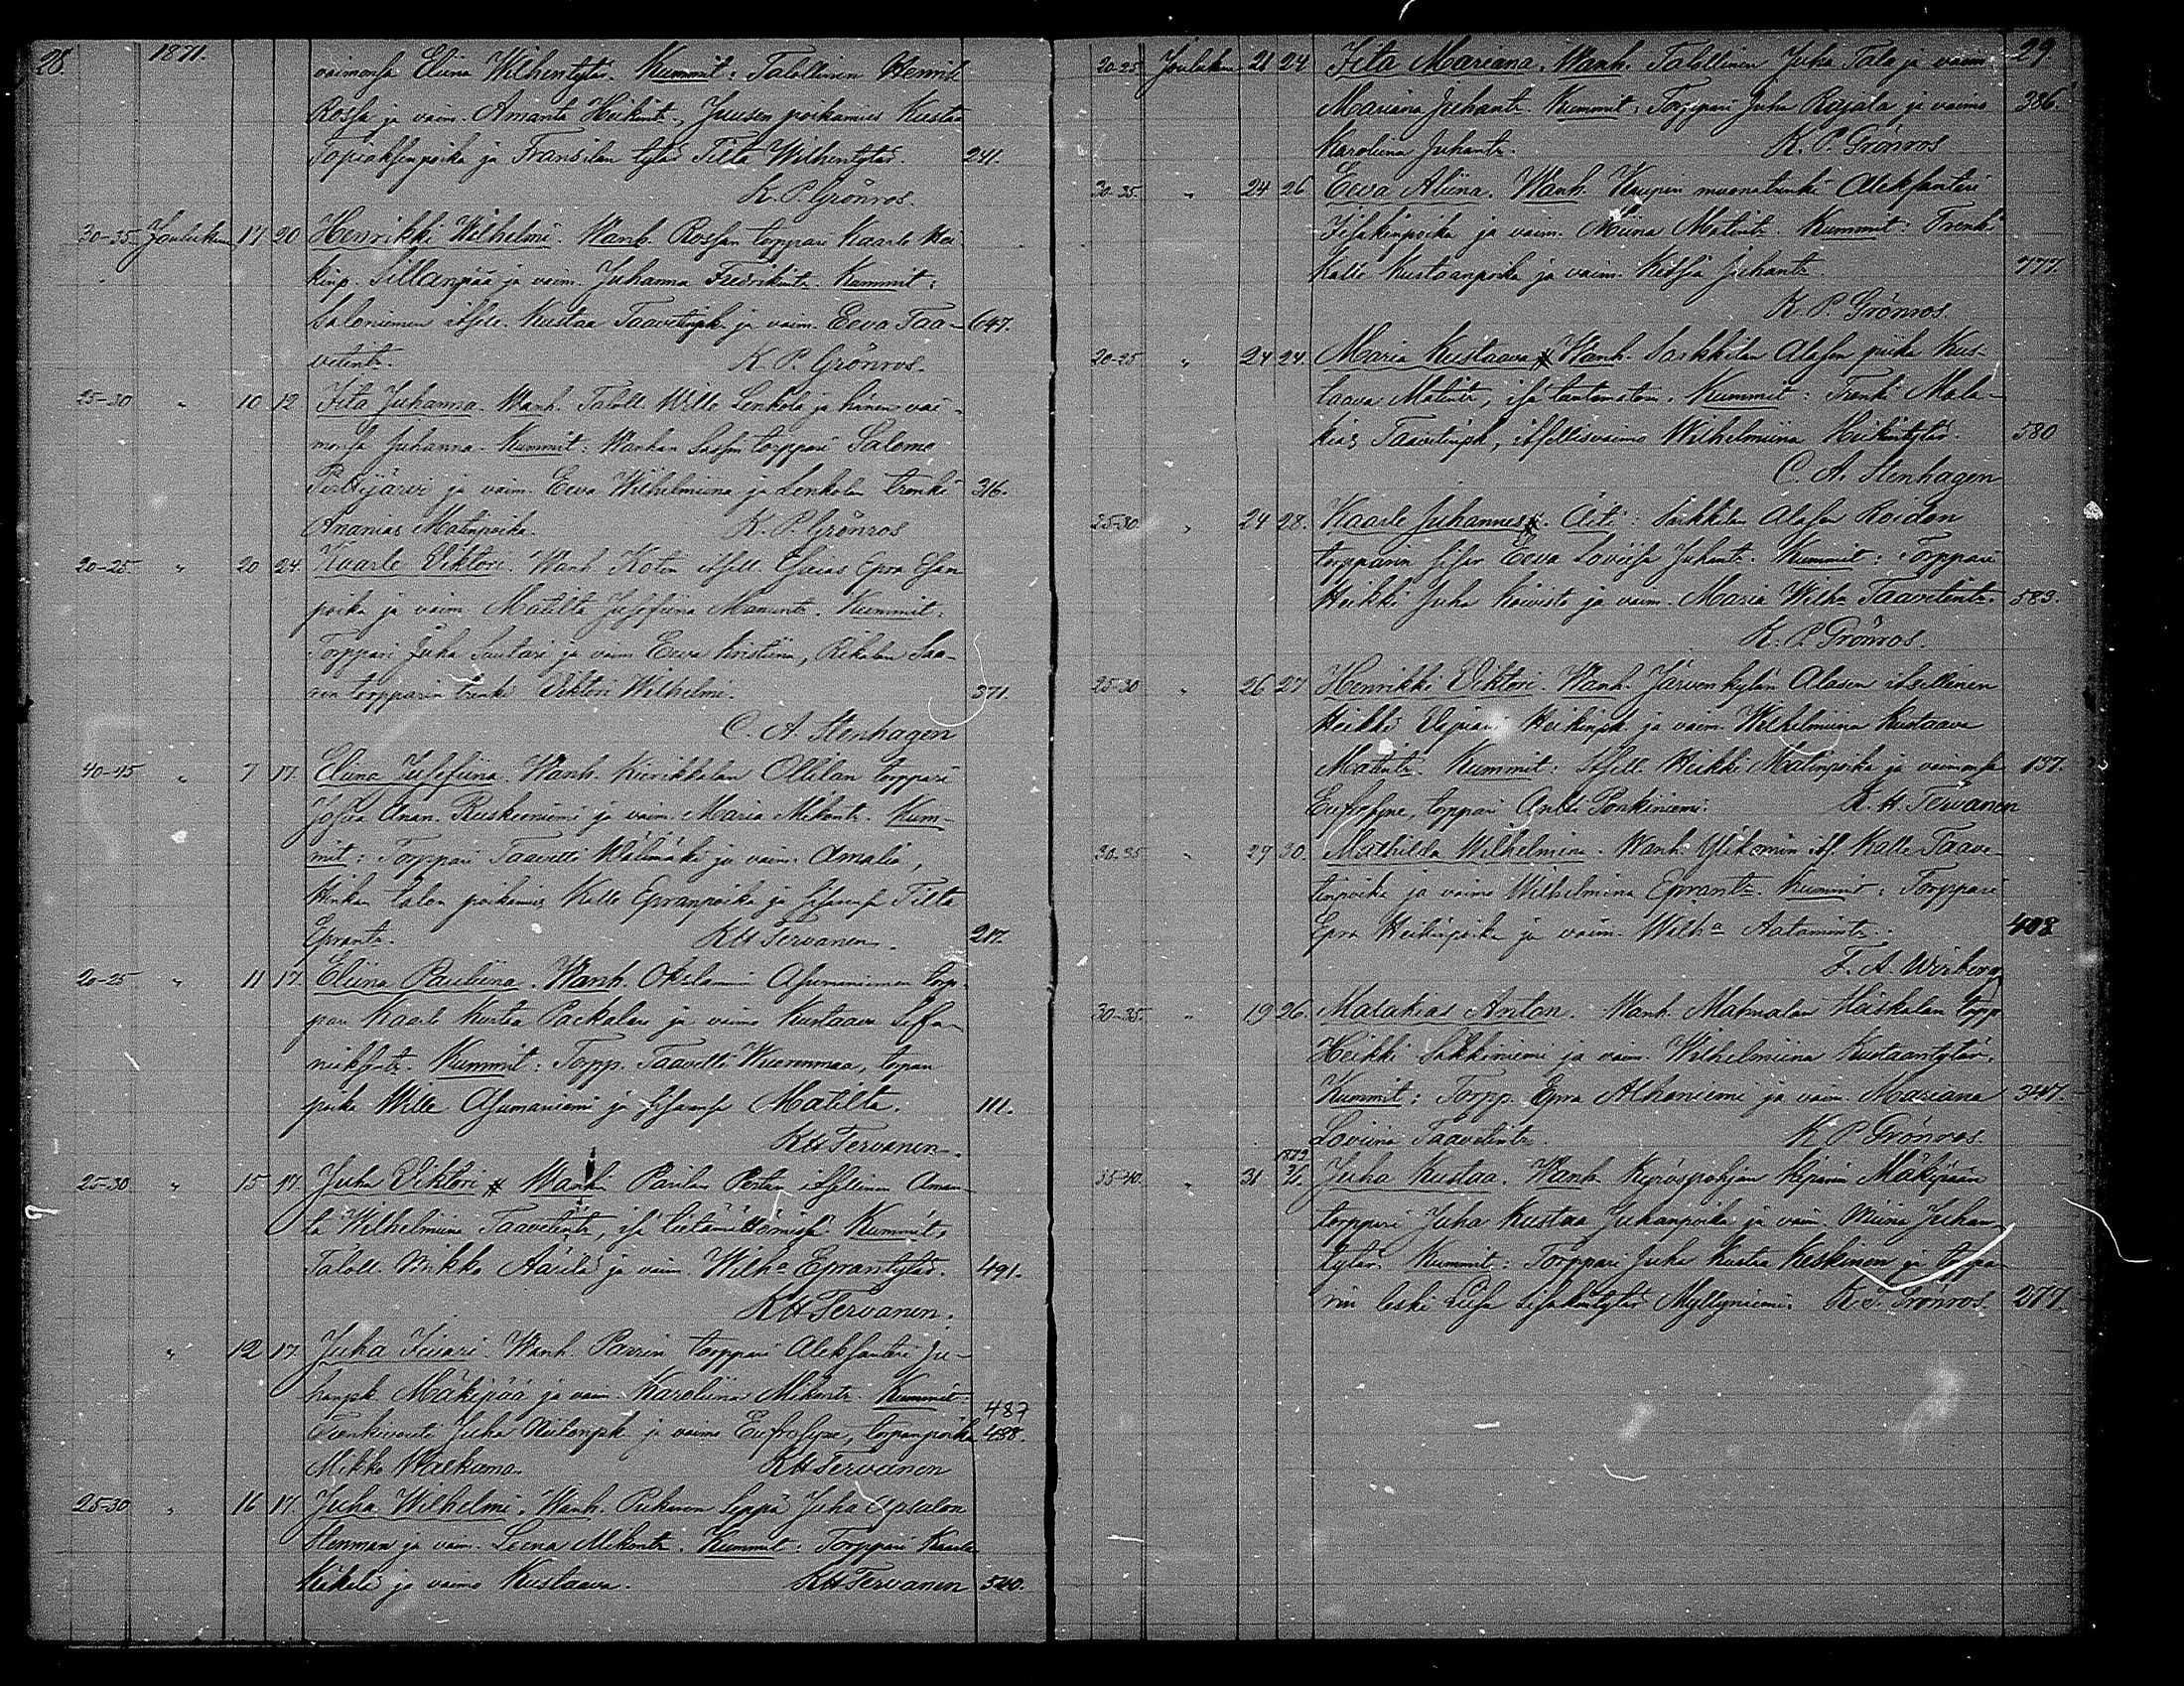 28. 1871.
vaimonsa Eliina Wilhemtytär. Kummit: Talollinen Henrik
Rossa ja vaim. Amanta Heikintr., Juusen poikamies Kustaa
Topiaksenpoika ja Fransilan tytär Tilta Wilhemtytär. 241.
K. P. Grönros.
30-35 Joulukuu 17 20 Henrikki Wilhelmi. Wanh. Rossan torppari Kaarle Hei-
kinp. Sillanpää ja vaim. Juhanna Fredrikintr. Kummit:
Saloniemen itsell. Kustaa Taavetinpk. ja vaim. Eeva Taa- 647.
vetintr. K. P. Grönros.
25-30 " 10 12 Iita Juhanna. Wanh. Taloll. Wille Lenkola ja hänen vai-
monsa Juhanna. Kummit: Wanhan Sassin torppari Salomo
Perttijärvi ja vaim. Eeva Wilhelmiina ja Lenkolan trenki 316.
Ananias Matinpoika. K. P. Grönros
20-25 " 20 24 Kaarle Viktori. Wanh. Kotin itsell. Esaias Epra Esan
poika ja vaim. Matilta Josefiina Manuntr. Kummit.
Torppari Juha Suutari ja vaim Eeva Kristiina, Rikalan Saa-
ren torpparin trenki Viktori Wilhelmi. 371.
C. A. Stenhagen
40-45 " 7 17. Eliina Josefiina. Wanh. Kierikkalan Ollilan torppari
Josua Anan. Ruskeeniemi ja vaim. Maria Mikontr. Kum-
mit: Torppari Taavetti Wälimäki ja vaim. Amalia,
Hinkan talon poikamies Kalle Epranpoika ja sisarensa Tilta
Eprantr. KH Tervanen. 217.
20-25 " 11 17. Eliina Pauliina. Wanh. Osaniemen torp-
pari Kaarle Kustaa Packalen ja vaimo Kustaava Sefa-
niaksentr. Kummit: Torpp. Taavetti Wuorenmaa, torpan
poika Wille Asumaniemi ja sisarensa Matilta. 111.
KH Tervanen.
25-30 " 15 17. Juha Viktori # Wanhin Parilan Pertun itsellinen Aman-
ta Wilhelmiina Taavetintr, isä tietämättömissä. Kummit:
Taloll. Mikko Äärilä ja vaim. Wilha Eprantytär. 491.
KH Tervanen.
" 12 17. Juha Iivari. Wanh. Paarin torppari Aleksanteri Ju-
hanpk. Mäkipää ja vaim. Karoliina Mikontr. Kummit: 487
Trenkivouti Juha Niilonpk ja vaimo Eufrosyne, torpanpoika 488.
Mikko Waekama. KH Tervanen
25-30 " 16 17 Juha Wilhelmi. Wanh. Pukaron Seppä Juha Apsalon
Stenman ja vaim. Leena Mikontr. Kummit: Torppari Kaarle
Käkelä ja vaimo Kustaava. KH Tervanen 540.
29
20-25 Joulukuu 21 24 Iita Mariana. Wanh. Talollinen Juha Talo ja vaim
Mariana Juhantr. Kummit: Torppari Juha Rajala ja vaimo 386.
Karoliina Juhantr. K. P. Grönros
30-35. " 24 26 Eeva Aliina. Wanh. Kaupin muonatrenki Aleksanteri
Iisakinpoika ja vaim. Miina Matintr. Kummit: Trenki
Kalle Kustaanpoika ja vaim. Kaisa Juhantr. 777.
K. P. Grönros.
20-25 " 24 24. Maria Kustaava # Wanh. Sarkkilan Alasen piika Kus-
taava Matintr, isä tuntematon. Kummit: Trenki Mala-
kias Taavetinpk, itsellisvaimo Wilhelmiina Heikintytär. 580
C. A. Stenhagen
25-30. " 24 28. Kaarle Juhannes #. Äiti: Sarkkilan Alasen Roidon
torpparin sisar Eeva Loviisa Juhantr. Kummit: Torppari
Heikki Juha Koivisto ja vaim. Maria Wilha Taavetintr. 583.
K. P. Grönros.
25-30 " 26 27 Henrikki Viktori. Wanh. Järvenkylän Alasen itsellinen
Heikki Heikinpk ja vaim. Wilhelmiina Kustaava
Matintr. Kummit: Itsell. Heikki Matinpoika ja vaimonsa 137.
Eufrosyne, torppari Antti Ponkiniemi. K. H. Tervanen
30-35 " 27 30. Mathilda Wilhelmina. Wanh. Ylikomin its. Kalle Taave-
tinpoika ja vaimo Wilhelmina Eprantr. Kummit: Torppari
Epra Heikinpoika ja vaim. Wilha Aatamintr. 408
F. A. Wirberg
30-35. " 19 26. Malakias Anton. Wanh. Mahnalan Häskalan torpp
Heikki Sakkiniemi ja vaim. Wilhelmiina Kustaantytär.
Kummit: Torpp. Epra Alhoniemi ja vaim. Mariana 347.
Loviina Taavetintr. K. P. Grönros.
1872
35-40. " 31 26. Juha Kustaa. Wanh. Kyröspohjan Keparin Mäkipään
torppari Juha Kustaa Juhanpoika ja vaim. Miina Juhan-
tytär. Kummit: Torppari Juha Kustaa Keskinen ja torppa-
rin leski Liisa Iisakintytär Myllyniemi. K. P. Grönros. 277.